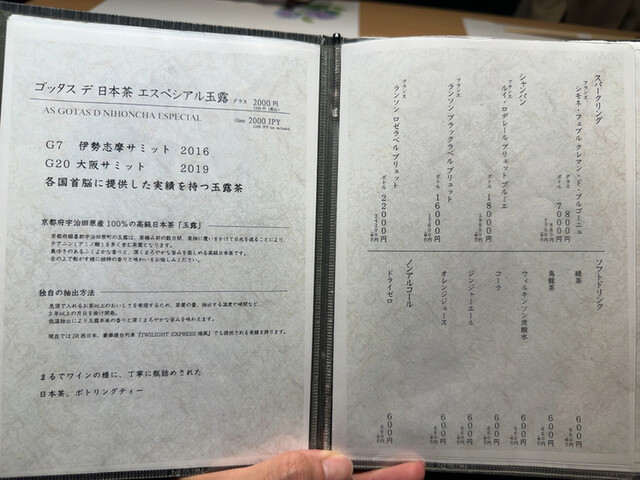 ゴッタス デ 日本茶 エスペシアル玉露 グラス 2000円
AS GOTAS D NIHONCHA ESPECIAL Glass 2000 JPY
G7 伊勢志摩サミット 2016
G20 大阪サミット 2019
各国首脳に提供した実績を持つ玉露茶
京都府宇治田原産 100%の高級日本茶「玉露」
独自の抽出方法
2年以上の月日を掛け開発。
低温抽出により玉露本来の香りと深くまろやかな旨みを味わえます。
現在ではJR西日本、豪華寝台列車『TWILIGHT EXPRESS 瑞風』でも提供される実績を誇ります。
まるでワインの様に、丁寧に瓶詰めされた
日本茶、ボトリングティー
スパークリング
フランス
シモネ・フェブル クレマン・ド・ブルゴーニュ
グラス 800円
ボトル 7000円
シャンパン
フランス
ルイ・ロデレール ブリュット プルミエ
ボトル 18000円
フランス
ランソン ブラックラベル ブリュット
ボトル 16000円
フランス
ランソン ロゼラベル ブリュット
ボトル 22000円
ソフトドリンク
緑茶 600円
烏龍茶 600円
ウィルキンソン炭酸水 600円
コーラ 600円
ジンジャーエール 600円
オレンジジュース 600円
ノンアルコール
ドライゼロ 600円